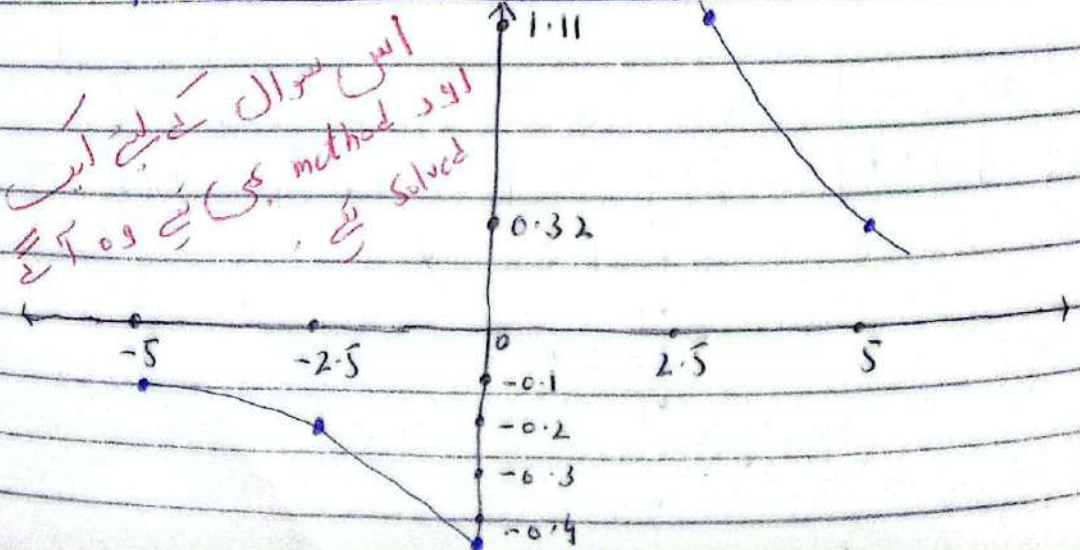 1.11
اس سوال کے لئے ایک
اور method بھی ہے وہ آگے
solved ہے
0.32
-5 -2.5 0 2.5 5
-0.1
-0.2
-0.3
-0.4